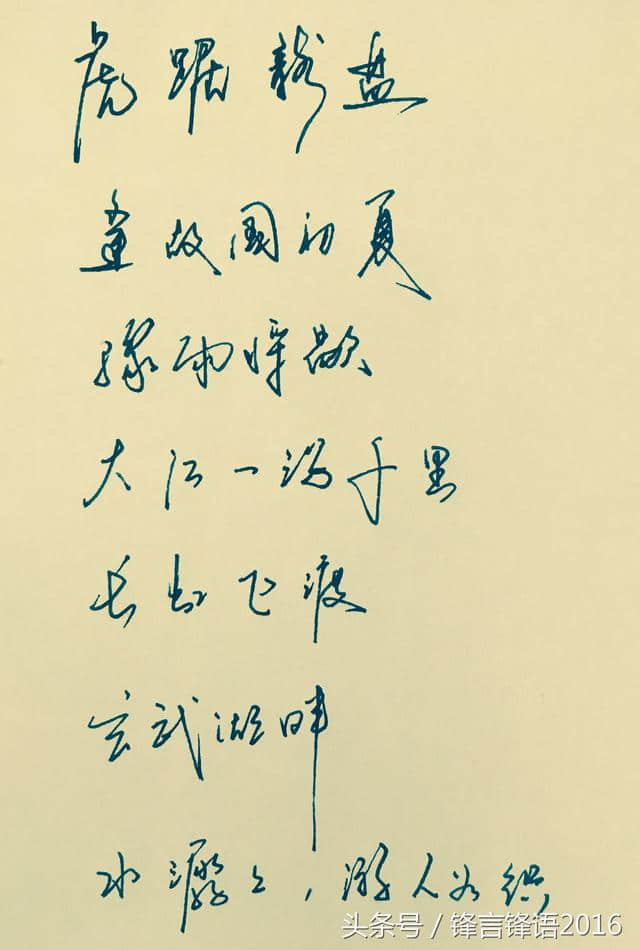 虎踞龍盘
故國初夏
骤雨歇
大江一泻千里
长虹飞渡
玄武湖畔
水潺々，游人如织
头条号／锋言锋语2016